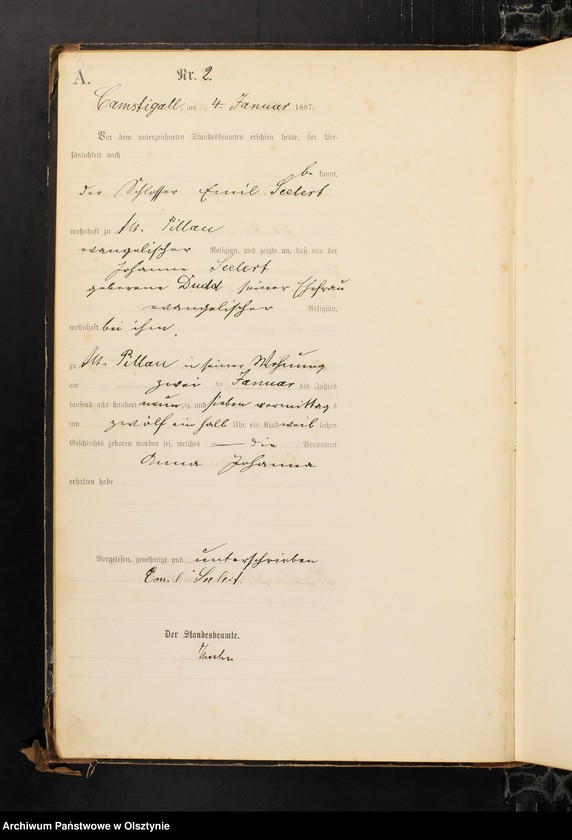 A.
Nr. 2.
Camstigall, am 4. Januar 1897.
Vor dem unterzeichneten Standesbeamten erschien heute, der Per-
sönlichkeit nach
be kannt,
der Schlosser Emil Seelert
wohnhaft zu Alt-Pillau
evangelischer Religion, und zeigte an, daß von der
Johanne Seelert
geborene Dudd seiner Ehefrau
evangelischer Religion,
wohnhaft bei ihm,
zu Alt-Pillau in seiner Wohnung
am zwei ten Januar des Jahres
tausend acht hundert neunzig und sieben vormittags
um zwölf ein halb Uhr ein Kind weiblichen
Geschlechts geboren worden sei, welches die Vornamen
Anna Johanna
erhalten habe
Vorgelesen, genehmigt und unterschrieben
Emil Seelert.
Der Standesbeamte.
Archiwum Państwowe w Olsztynie